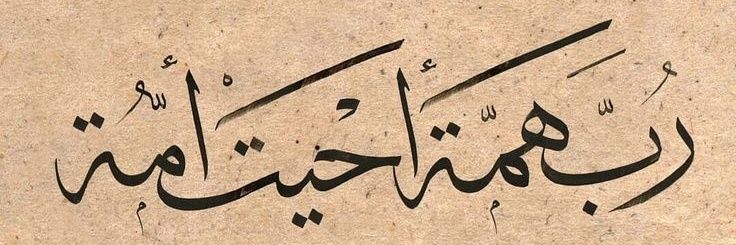 رُبَّ همّة أحْيت أمُّة